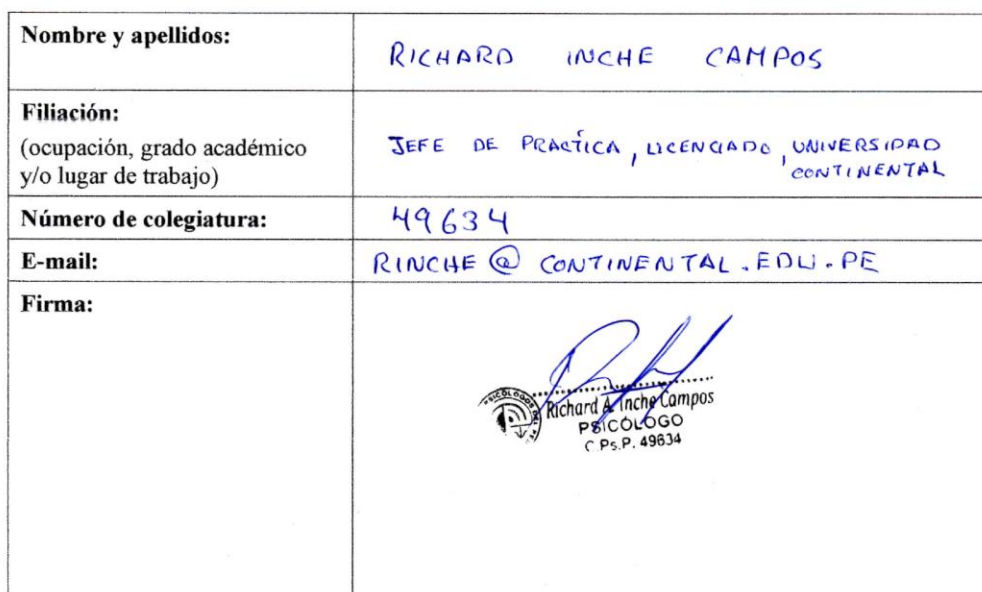 Nombre y apellidos:
RICHARD INCHE CAMPOS
Filiación:
(ocupación, grado académico
y/o lugar de trabajo)
JEFE DE PRACTICA, LICENCIADO, UNIVERSIDAD
CONTINENTAL
Número de colegiatura:
49634
E-mail:
RINCHE @ CONTINENTAL.EDU.PE
Firma:
Richard A. Inche Campos
PSICÓLOGO
C.Ps.P. 49634